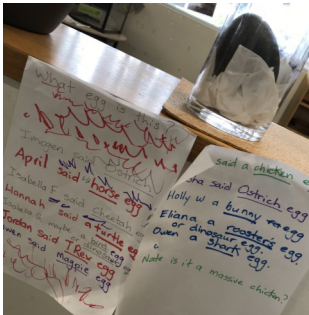 What egg is this?
Imogen said Ostrich
April said horse egg
Isabella F said Cheetah
Hannah said a turtle egg
Isabella S maybe a bird egg
Jordan said T Rex egg
Owen said Magpie egg
said a chicken
sha said Ostrich egg
Holly W a bunny egg
Eliana a roosters egg
or dinosaur egg
Owen a giant egg.
Nate is it a massive chicken?